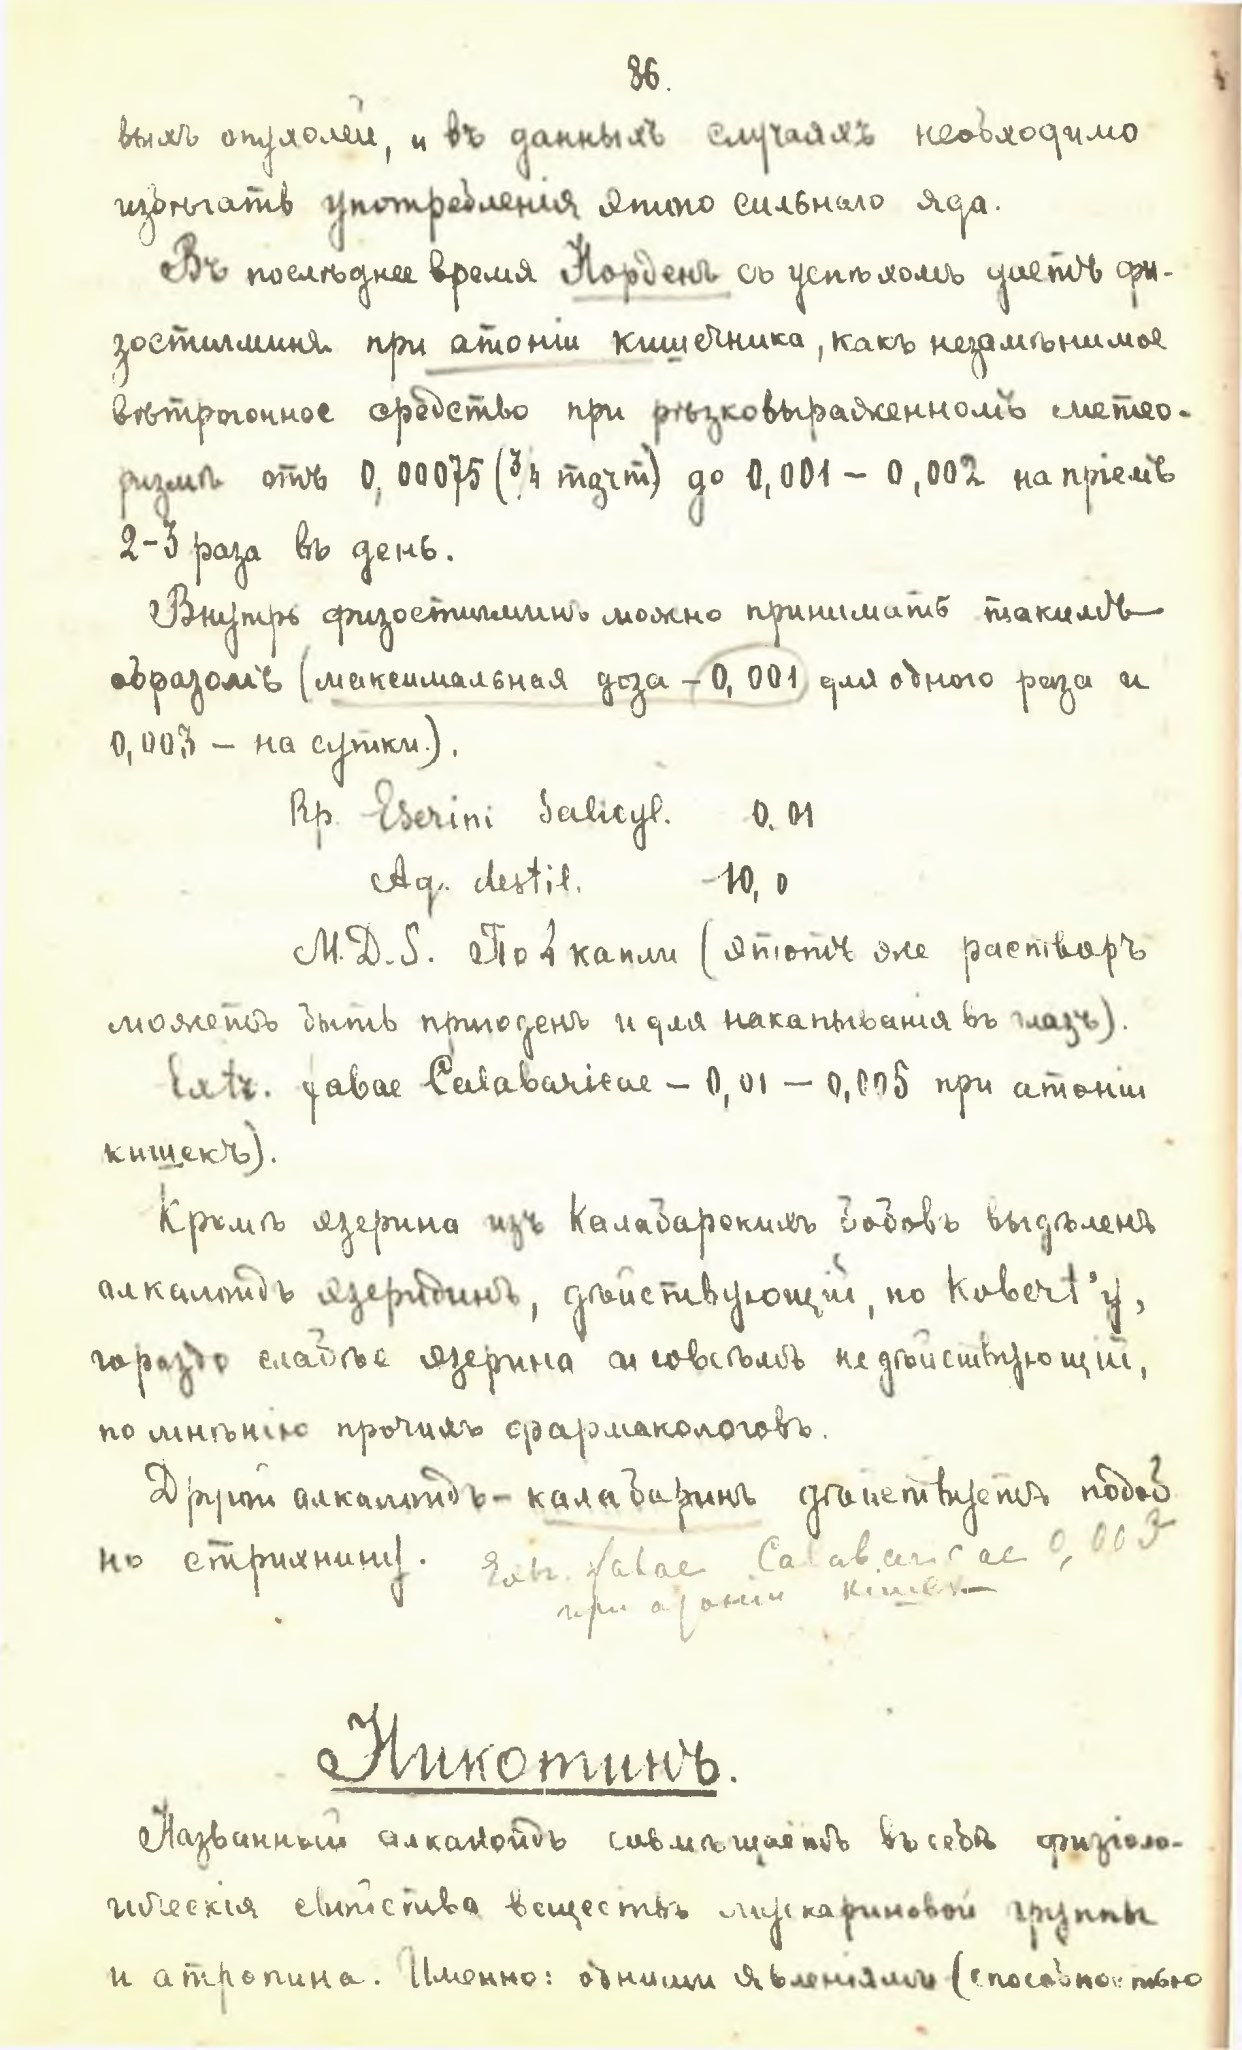 86.
выхъ опухолей, и въ данныхъ случаяхъ необходимо
избѣгать употребленія этого сильнаго яда.
Въ послѣднее время Норденъ съ успѣхомъ даетъ фи-
зостигминъ при атоніи кишечника, какъ незамѣнимое
вѣтрогонное средство при рѣзковыраженномъ метео-
ризмѣ отъ 0,00075 (3/4 mgrm) до 0,001 – 0,002 на пріемъ
2-3 раза въ день.
Внутрь физостигминъ можно принимать такимъ
образомъ (максимальная доза – 0,001 для одного раза и
0,003 – на сутки.).
Rp. Eserini Salicyl. 0.01
Aq. destil. 10,0
M.D.S. По 2 капли (этотъ же растворъ
можетъ быть пригоденъ и для накапыванія въ глазъ).
Extr. fabae Calabaricae – 0,01 – 0,005 при атоніи
кишекъ).
Кромѣ эзерина изъ Калабарскихъ бобовъ выдѣленъ
алкалоидъ эзеридинъ, дѣйствующій, по Kobert'у,
гораздо слабѣе эзерина и совсѣмъ не дѣйствующій,
по мнѣнію прочихъ фармакологовъ.
Другой алкалоидъ – калабаринъ дѣйствуетъ подоб
но стрихнину. Extr. fabae Calabaricae 0,003
при атоніи кишек
Никотинъ.
Названный алкалоидъ совмѣщаетъ въ себѣ физіоло-
гическія свойства веществъ мускариновой группы
и атропина. Именно: одними явленіями (способностью